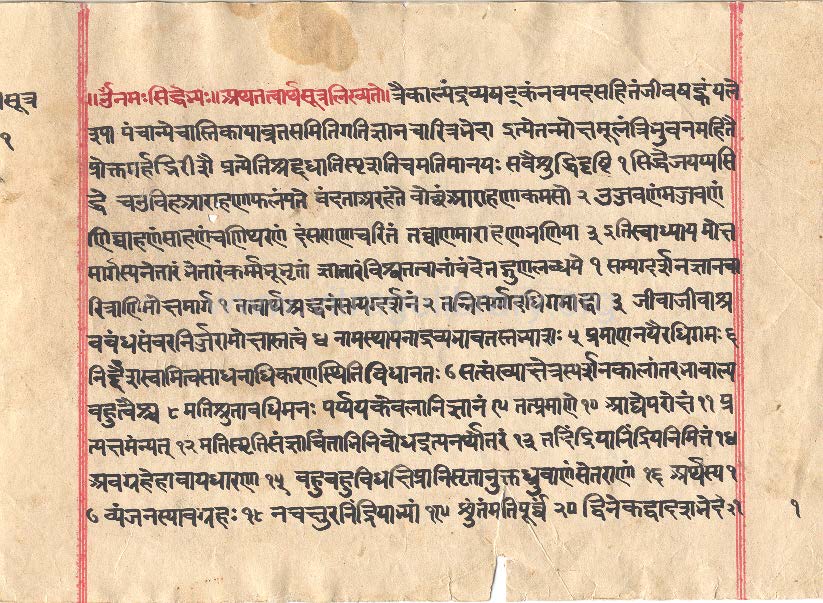 ॥र्उनमःसिद्धेभ्यः॥अथतत्वार्थसूत्रलिख्यते॥त्रैकाल्पंद्रव्यषट्कंनवपदसहितंजीवषट्कायले
श्या पंचान्येचास्तिकायाव्रतसमितिगतिज्ञानचारित्रभेदा इत्येतन्मोक्षमूलंत्रिभुवनमहितै
प्रोक्तमर्हद्भिरीशै प्रत्येतिश्रद्दधातिस्पृशतिचमतिमानयः सवैशुद्धिदृष्टि १ सिद्धेजयप्पसि
द्धे चउविहआराहणाफलंपत्ते वंदित्ताअरहंते वोच्छंआराहणाकमसो २ उज्जवणंमज्जवणं
णिव्वाहणंसाहणंचणिच्छरणं दंसणणाणचरितं तवाणमाराहणाभणिया ३ इतिस्वाध्याय मोक्ष
मार्गस्यनेतारं भेतारंकर्म्मभूभृतां ज्ञातारंविश्वतत्वानांवंदेतद्गुणलब्धये १ सम्यग्दर्शनज्ञानचा
रित्राणिमोक्षमार्ग १ तत्वार्थश्रद्धानंसम्यग्दर्शनं २ तन्निसर्गादधिगमाद्वा ३ जीवाजीवाश्र
वबंधसंवरनिर्जरामोक्षास्तत्वं ४ नामस्थापनाद्रव्यभावतस्तन्न्यासः ५ प्रमाणनयैरधिगमः ६
निर्द्देशस्वामित्वसाधनाधिकरणस्थितिविधानतः ७ सत्संख्याक्षेत्रस्पर्शनकालांतरभावाल्प
बहुत्वैश्च ८ मतिश्रुतावधिमनः पर्य्ययकेवलानिज्ञानं ९ तत्प्रमाणे १० आद्येपरोक्षं ११ प्र
त्यक्षमन्यत् १२ मतिस्मृतिसंज्ञाचिंताभिनिबोधइत्यनर्थांतरं १३ तदिंद्रियानिंद्रियनिमित्तं १४
अवग्रहेहावायधारणा १५ बहुबहुविधक्षिप्रानिसृतानुक्तध्रुवाणंसेतराणां १६ अर्थस्य १
७ व्यंजनस्यावग्रहः १८ नचक्षुरनिंद्रियाभ्यां १९ श्रुतंमतिपूर्व्वं २० द्विनेकद्वादशभेदं २१
सूत्र
१
१